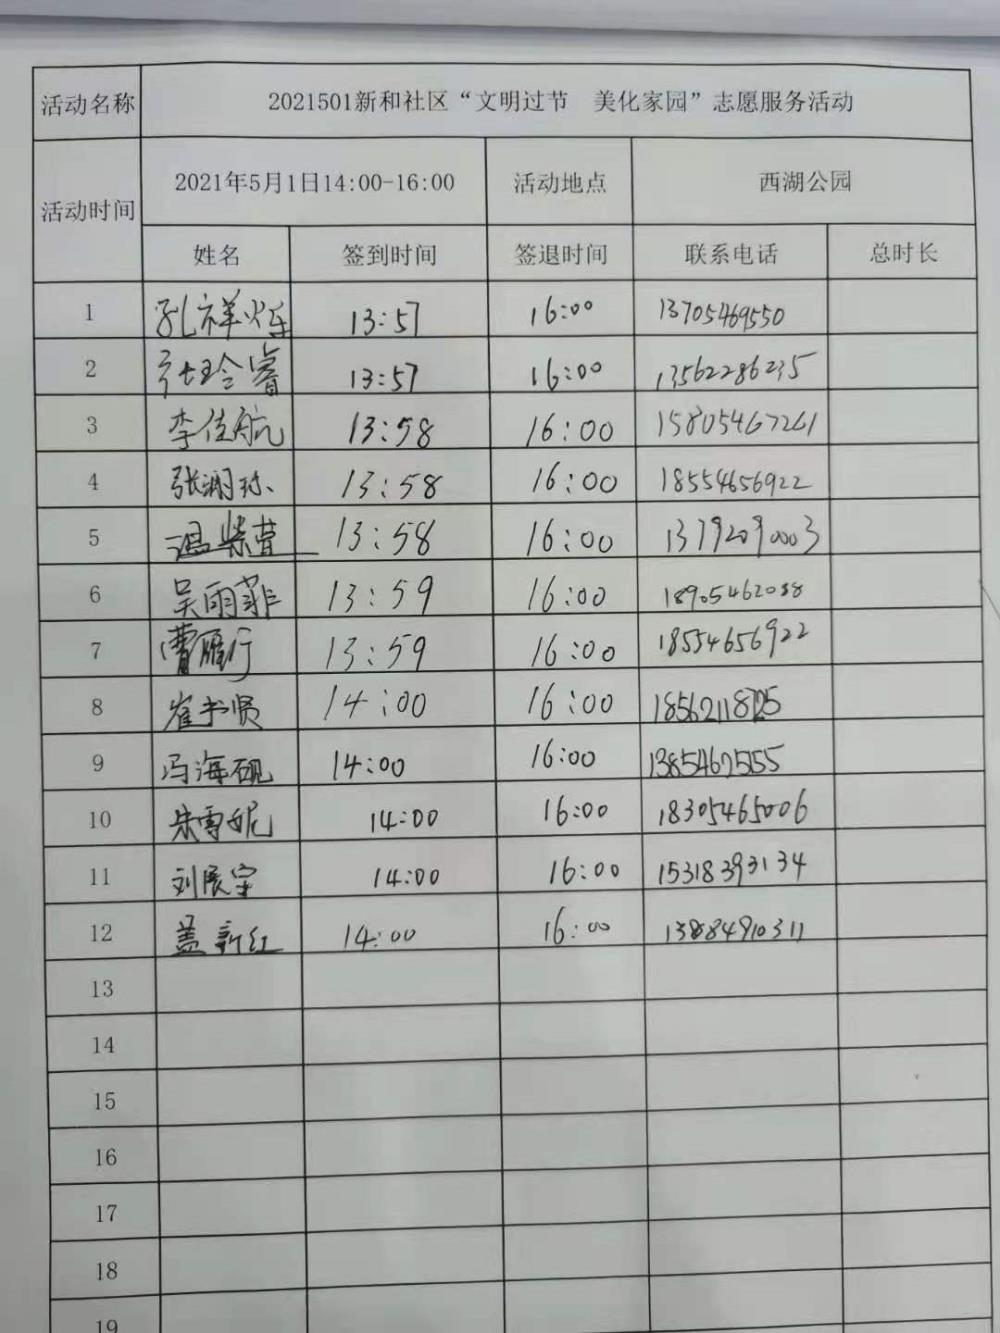 活动名称 2021501新和社区“文明过节 美化家园”志愿服务活动
活动时间 2021年5月1日14:00-16:00 活动地点 西湖公园
姓名 签到时间 签退时间 联系电话 总时长
1 孔祥烁 13:57 16:00 13705469550
2 张玲睿 13:57 16:00 13562286235
3 李佳航 13:58 16:00 15805467261
4 张渊珍 13:58 16:00 18554656922
5 温紫萱 13:58 16:00 13792090003
6 吴雨菲 13:59 16:00 18905462088
7 曹雁行 13:59 16:00 18554656922
8 崔书贤 14:00 16:00 18562118725
9 冯海砚 14:00 16:00
10 朱雪妮 14:00 16:00 18305465006
11 刘展宇 14:00 16:00 15318393134
12 盖新红 14:00 16:00 13884910311
13
14
15
16
17
18
19